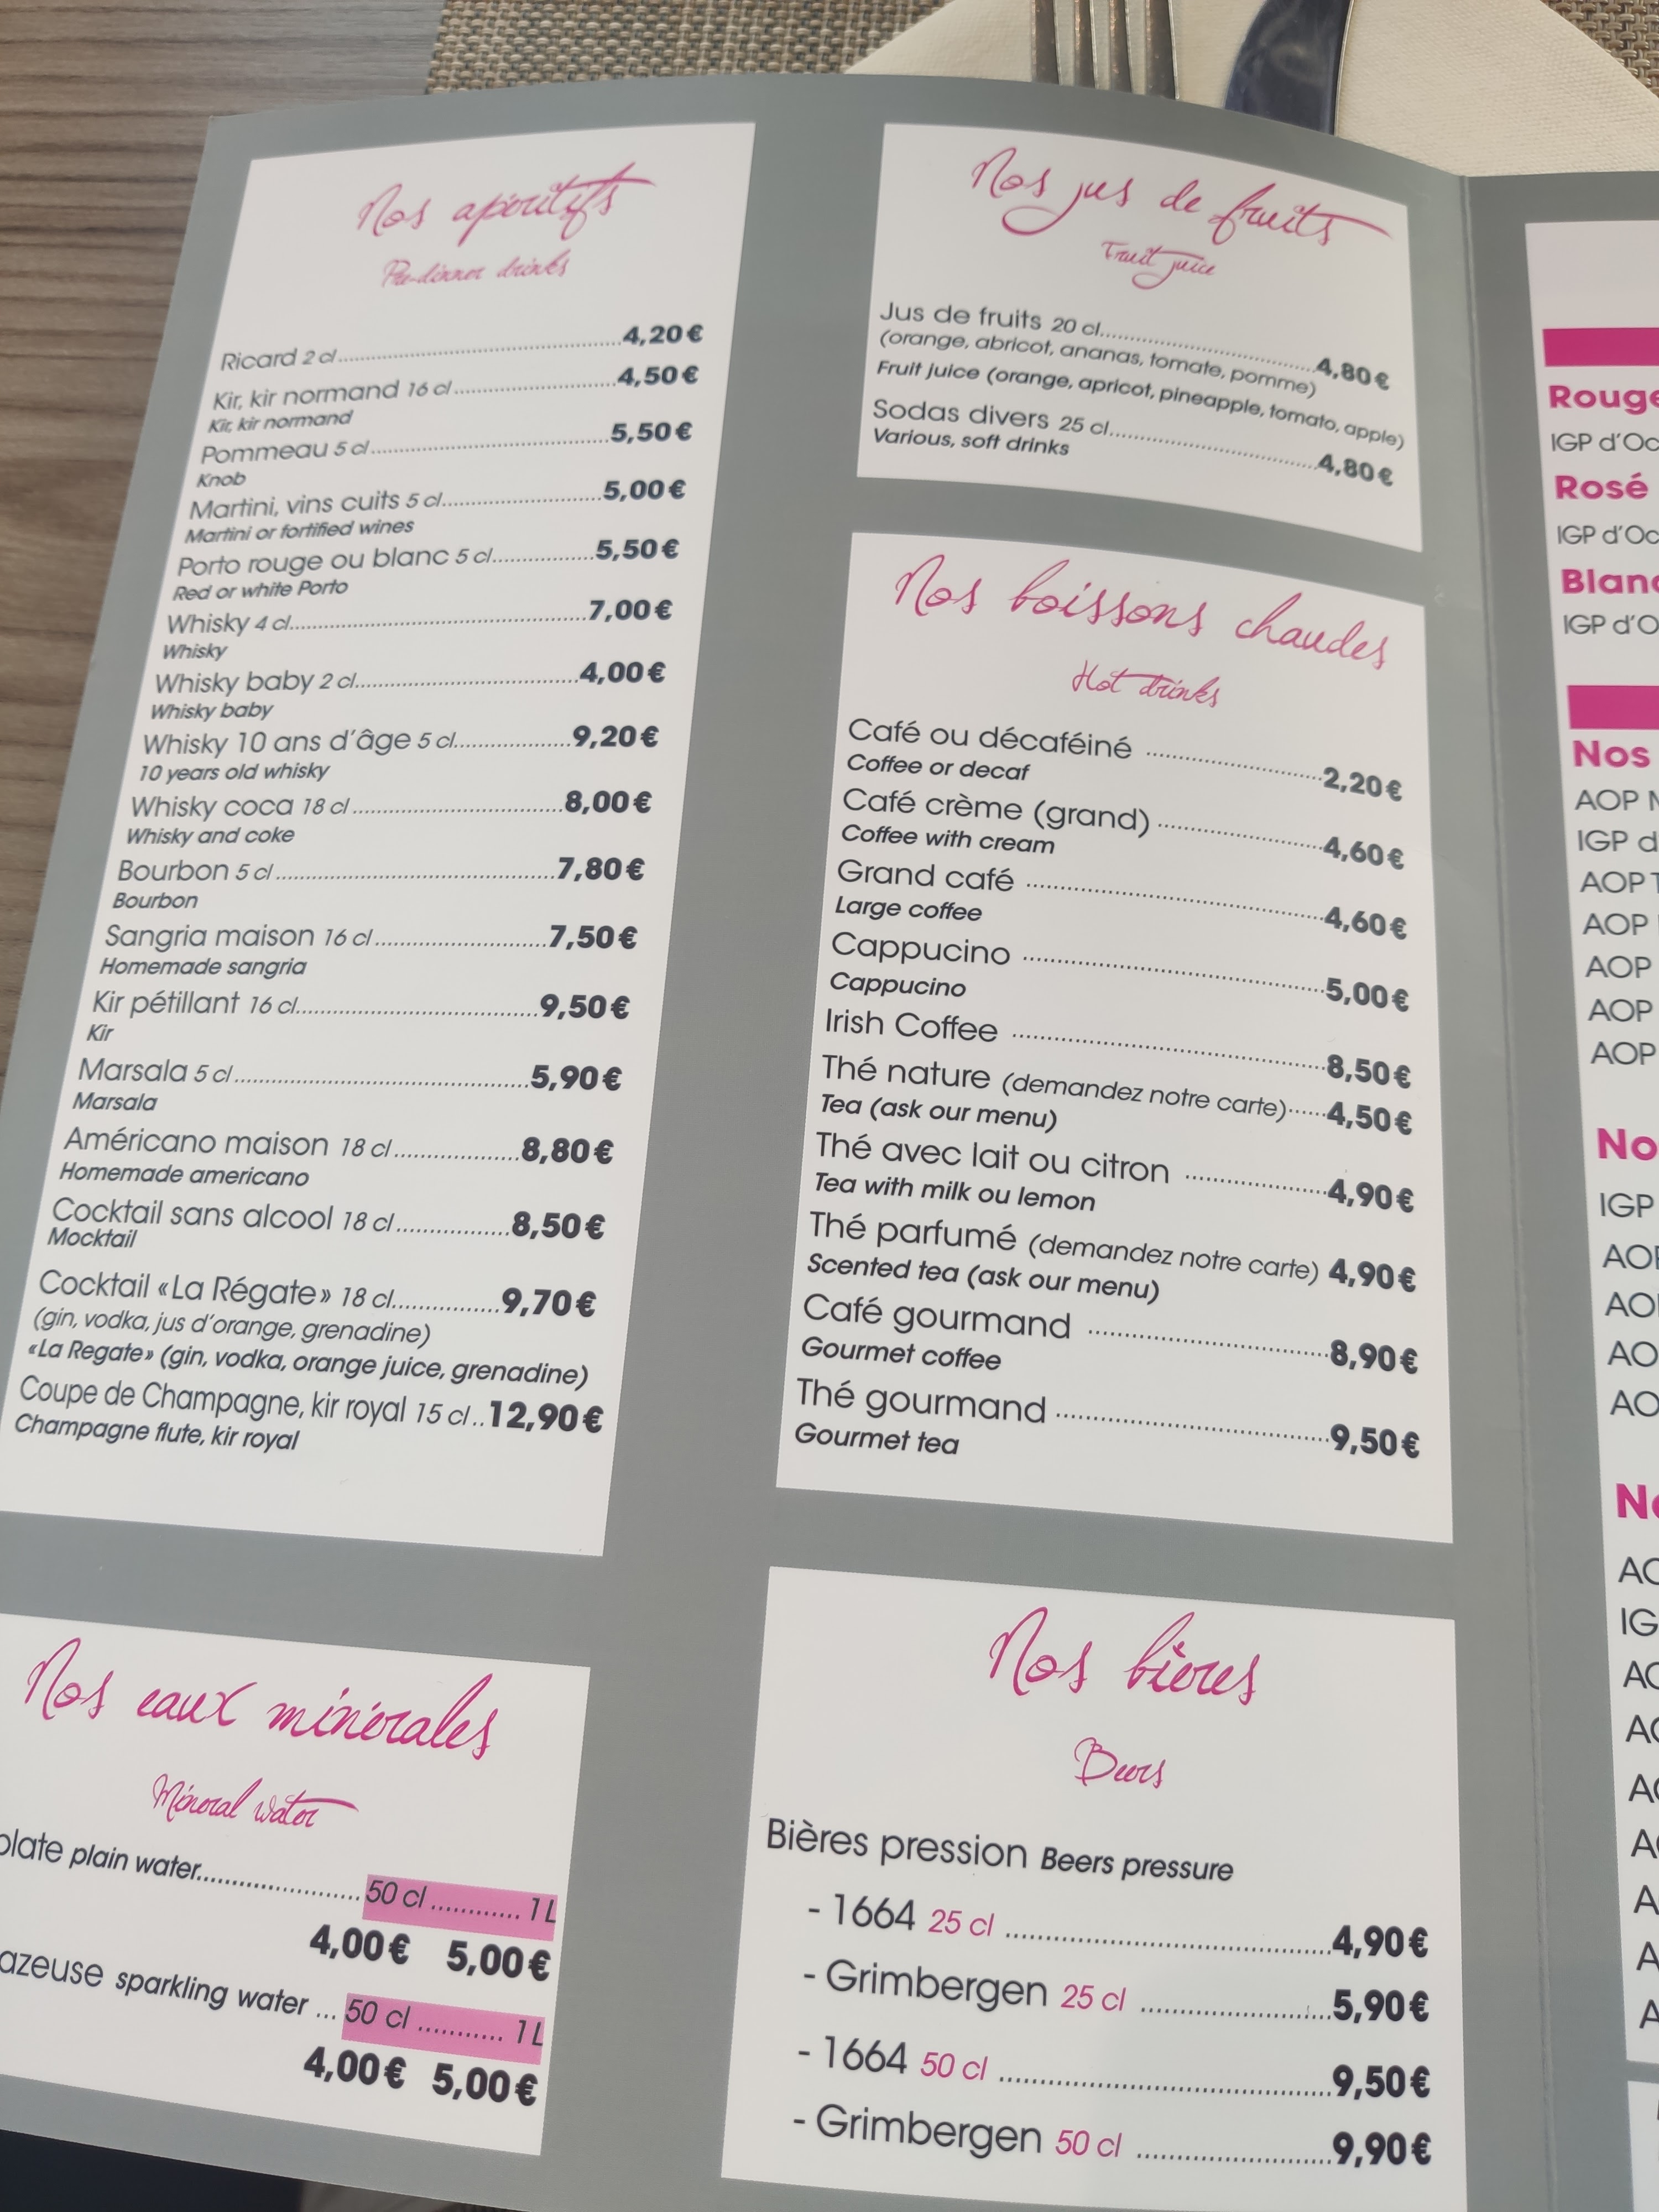 Nos apéritifs
Pre-dinner drinks
Ricard 2 cl 4,20€
Kir, kir normand 16 cl 4,50€
Kir, kir normand
Pommeau 5 cl 5,50€
Knob
Martini, vins cuits 5 cl 5,00€
Martini or fortified wines
Porto rouge ou blanc 5 cl 5,50€
Red or white Porto
Whisky 4 cl 7,00€
Whisky
Whisky baby 2 cl 4,00€
Whisky baby
Whisky 10 ans d'âge 5 cl 9,20€
10 years old whisky
Whisky coca 18 cl 8,00€
Whisky and coke
Bourbon 5 cl 7,80€
Bourbon
Sangria maison 16 cl 7,50€
Homemade sangria
Kir pétillant 16 cl 9,50€
Kir
Marsala 5 cl 5,90€
Marsala
Américano maison 18 cl 8,80€
Homemade americano
Cocktail sans alcool 18 cl 8,50€
Mocktail
Cocktail «La Régate» 18 cl 9,70€
(gin, vodka, jus d'orange, grenadine)
«La Regate» (gin, vodka, orange juice, grenadine)
Coupe de Champagne, kir royal 15 cl..12,90€
Champagne flute, kir royal
Nos eaux minérales
Mineral water
plate plain water 50 cl 1 L
4,00€ 5,00€
azeuse sparkling water ... 50 cl 1 L
4,00€ 5,00€
Nos jus de fruits
Fruit juice
Jus de fruits 20 cl 4,80€
(orange, abricot, ananas, tomate, pomme)
Fruit juice (orange, apricot, pineapple, tomato, apple)
Sodas divers 25 cl 4,80€
Various, soft drinks
Nos boissons chaudes
Hot drinks
Café ou décaféiné 2,20€
Coffee or decaf
Café crème (grand) 4,60€
Coffee with cream
Grand café 4,60€
Large coffee
Cappucino 5,00€
Cappucino
Irish Coffee 8,50€
Thé nature (demandez notre carte) 4,50€
Tea (ask our menu)
Thé avec lait ou citron 4,90€
Tea with milk ou lemon
Thé parfumé (demandez notre carte) 4,90€
Scented tea (ask our menu)
Café gourmand 8,90€
Gourmet coffee
Thé gourmand 9,50€
Gourmet tea
Nos bières
Beers
Bières pression Beers pressure
- 1664 25 cl 4,90€
- Grimbergen 25 cl 5,90€
- 1664 50 cl 9,50€
- Grimbergen 50 cl 9,90€
Rouge
IGP d'Oc
Rosé
IGP d'Oc
Blanc
IGP d'O
Nos
AOP
IGP d
AOP
AOP
AOP
AOP
AOP
No
IGP